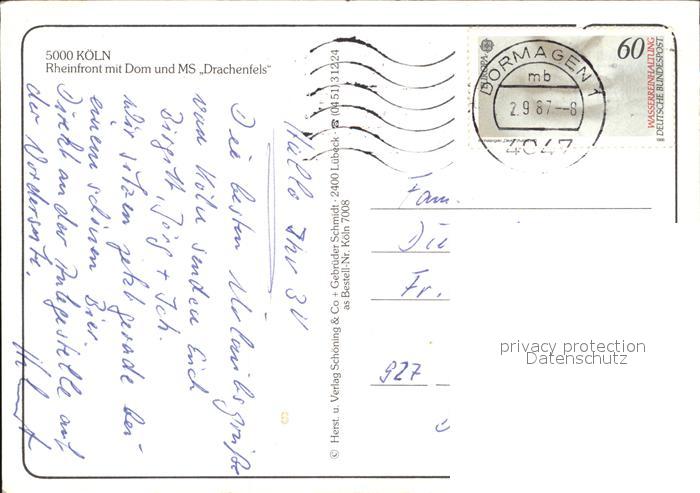 5000 KÖLN
Rheinfront mit Dom und MS „Drachenfels“
Hallo Ihr 3 !!
Die besten Urlaubsgrüße
von Köln senden Euch
Birgitt, Jörg + Ich.
Wir sitzen jetzt gerade bei-
einem schönen Bier.
Direkt an der Anlegestelle auf
der Vorderseite.
© Herst. u. Verlag Schöning & Co + Gebrüder Schmidt · 2400 Lübeck · ☎ (04 51) 3 12 24
as Bestell-Nr. Köln 7008
EUROPA
60
WASSERREINHALTUNG
DEUTSCHE BUNDESPOST
DORMAGEN 1
mb
2.9.87--8
4047
Fam.
Die
Fr.
927
privacy protection
Datenschutz